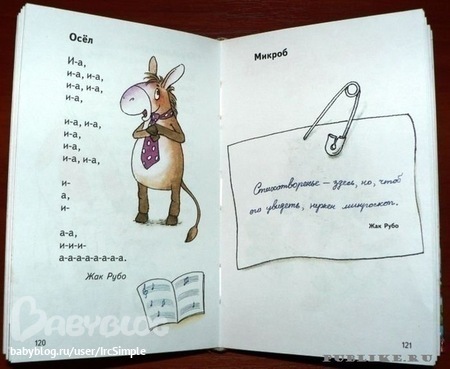 Осёл
И-а,
и-а, и-а,
и-а, и-а,
и-а,
и-а, и-а,
и-а,
и-а,
и-а, и-а,
и-
а,
и-
а-а,
и-и-и-
а-а-а-а-а-а-а.
Жак Рубо
120
Микроб
Стихотворенье – здесь, но, чтоб
его увидеть, нужен микроскоп.
Жак Рубо
121
BABYBLOG
babyblog.ru/user/IrcSimple
PUBLIKE.RU